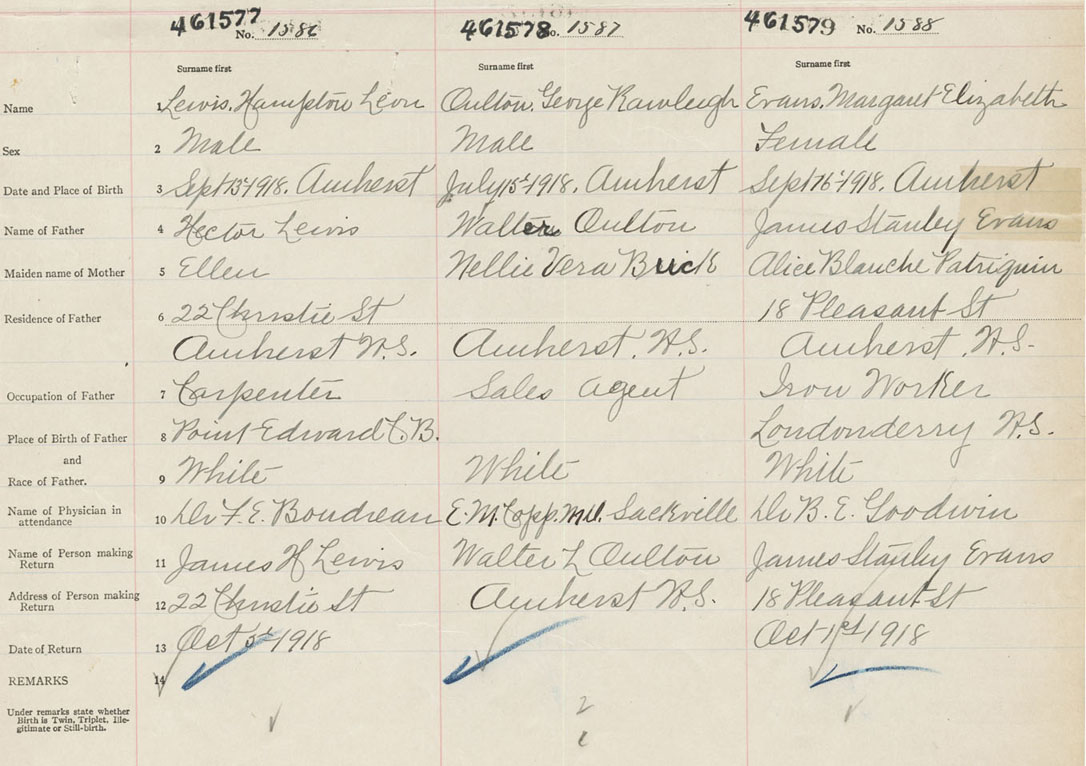 461577 461578 461579
No. 1586 No. 1587 No. 1588
Surname first Surname first Surname first
Name 1 Lewis, Hampton Leon Oulton, George Rawleigh Evans, Margaret Elizabeth
Sex 2 Male Male Female
Date and Place of Birth 3 Sept 15th 1918. Amherst July 15th 1918. Amherst Sept 16th 1918. Amherst
Name of Father 4 Hector Lewis Walter Oulton James Stanley Evans
Maiden name of Mother 5 Ellen Nellie Vera Buck Alice Blanche Patriquin
Residence of Father 6 22 Christie St 18 Pleasant St
Amherst N.S. Amherst, N.S. Amherst, N.S.
Occupation of Father 7 Carpenter Sales Agent Iron Worker
Place of Birth of Father 8 Point Edward C.B. Londonderry N.S.
and
Race of Father. 9 White White White
Name of Physician in
attendance 10 Dr F. E. Boudreau E. M. Copp. M.D. Sackville Dr B. E. Goodwin
Name of Person making
Return 11 James H Lewis Walter L Oulton James Stanley Evans
Address of Person making
Return 12 22 Christie St Amherst N.S. 18 Pleasant St
Date of Return 13 Oct 1918 Oct 1st 1918
REMARKS 14
Under remarks state whether
Birth is Twin, Triplet, Ille-
gitimate or Still-birth.
2